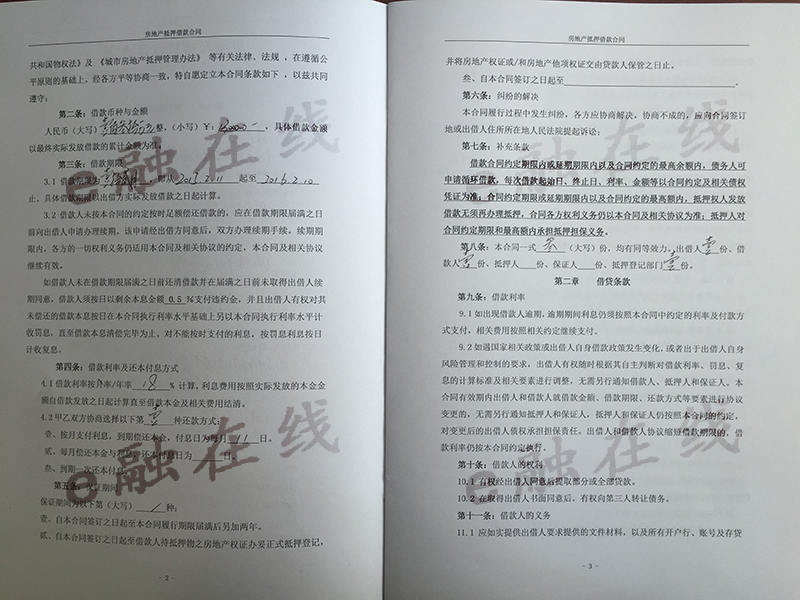 房地产抵押借款合同
共和国物权法》及 《城市房地产抵押管理办法》 等有关法律、法规 ，在遵循公
平原则的基础上，经各方平等协商一致，特自愿立本合同条款如下 ，以兹共同
遵守：
第二条：借款币种与金额
人民币（大写） 整，（小写）￥： ，具体借款金额
以最终实际发放借款的累计金额为准。
第三条：借款期限
3.1 借款期限为 ，即从 2015.2.11 起至 2016.2.10
止，具体借款期限以出借方实际发放借款之日起计算。
3.2 借款人未按本合同的约定按时足额偿还借款的，应在借款期限届满之日
前向出借人申请办理续期，该申请经出借方同意后，双方办理续期手续。续期期
限内，各方的一切权利义务仍适用本合同及相关协议的约定，本合同及相关协议
继续有效。
如借款人未在借款期限届满之日前还清借款并在届满之日前未取得出借人续
期同意，借款人须按日以剩余本息金额 0.5 %支付违约金，并且出借人有权对其
未偿还的借款本息按日在本合同执行利率水平基础上另以本合同执行利率水平计
收罚息，直至借款本息清偿完毕为止，对不能按时支付的利息，按罚息利息按日
计收复息。
第四条：借款利率及还本付息方式
4.1 借款利率按月率/年率 18 % 计算，利息费用按照实际发放的本金金
额自借款发放之日起计算直至借款本金及相关费用结清。
4.2 甲乙双方协商选择以下第 壹 种还款方式：
壹、按月支付利息，到期偿还本金，付息日为每月 11 日。
贰、每月偿还本金与利息，还本付息日为 日。
叁、到期一次还本付息。
第五条：保证期间
保证期间为以下第（大写） / 种：
壹、自本合同签订之日起至本合同履行期限届满后另加两年。
贰、自本合同签订之日起至借款人待抵押物之房地产权证办妥正式抵押登记，
- 2 -
房地产抵押借款合同
并将房地产权证或/和房地产他项权证交由贷款人保管之日止。
叁、自本合同签订之日起至
第六条：纠纷的解决
本合同履行过程中发生纠纷，各方应协商解决，协商不成的，应向合同签订
地或出借人住所所在地人民法院提起诉讼；
第七条：补充条款
借款合同约定期限内或延期期限内以及合同约定的最高余额内，债务人可
申请循环借款，每次借款起始日、终止日、利率、金额等以合同约定及相关债权
凭证为准；合同约定期限或延期期限内以及合同约定的最高额内，抵押权人发放
借款无须再办理抵押，合同各方权利义务仍以本合同及相关协议为准；抵押人对
合同约定期限和最高额内承担抵押担保义务。
第八条：本合同一式 （大写）份，均有同等效力。出借人 壹 份、借
款人 壹 份、抵押人 份、保证人 份、抵押登记部门 壹 份。
第二章 借贷条款
第九条：借款利率
9.1 如出现借款人逾期，逾期期间利息仍须按照本合同中约定的利率及付款方
式支付，相关费用按照相关约定继续支付。
9.2 如遇国家相关政策或出借人自身借款政策发生变化，或者出于出借人自身
风险管理和控制的要求，出借人有权随时根据其自主判断对借款利率、罚息、复
息的计算标准及相关要素进行调整，无需另行通知借款人、抵押人和保证人。本
合同有效期内出借人和借款人就借款金额、借款期限、还款方式等要素进行协议
变更的，无需另行通知抵押人和保证人，抵押人和保证人仍按照本合同的约定，
对变更后的出借人债权承担担保责任。出借人和借款人协议缩短借款期限的，借
款利率仍按本合同约定执行。
第十条：借款人的权利
10.1 有权经出借人同意后提取部分或全部贷款。
10.2 在取得出借人书面同意后，有权向第三人转让债务。
第十一条：借款人的义务
11.1 应如实提供出借人要求提供的文件材料，以及所有开户行、账号及存贷
- 3 -
e融在线
e融在线
e融在线
e融在线